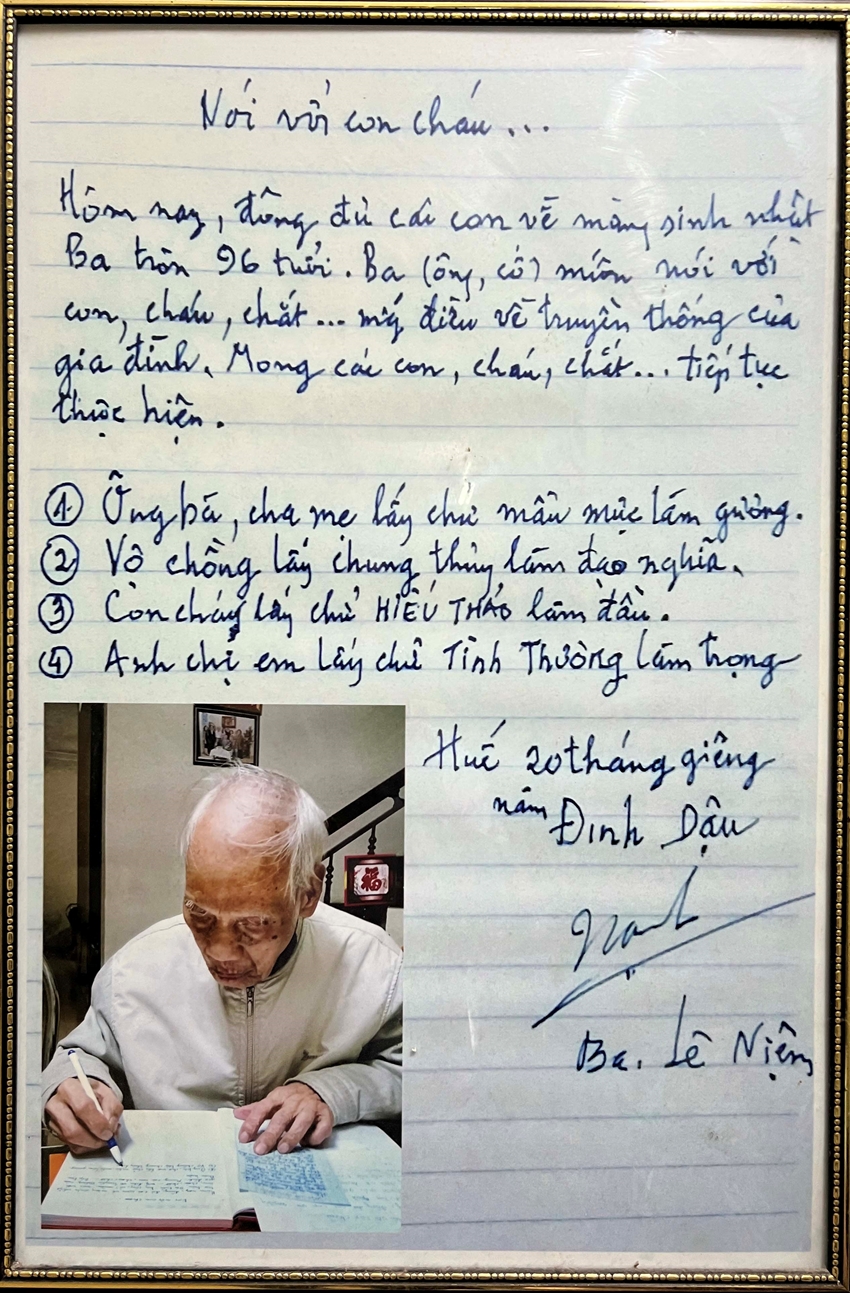 Nói với con cháu...
Hôm nay, đông đủ các con về mừng sinh nhật
Ba tròn 96 tuổi. Ba (ông, cố) muốn nói với
con, cháu, chắt... mấy điều về truyền thống của
gia đình. Mong các con, cháu, chắt... tiếp tục
thực hiện.
① Ông bà, cha mẹ lấy chữ mẫu mực làm gương.
② Vợ chồng lấy chung thủy làm đạo nghĩa.
③ Con cháu lấy chữ HIẾU THẢO làm đầu.
④ Anh chị em lấy chữ Tình Thương làm trọng
Huế 20 tháng giêng
năm Đinh Dậu
Ba. Lê Niệm
福